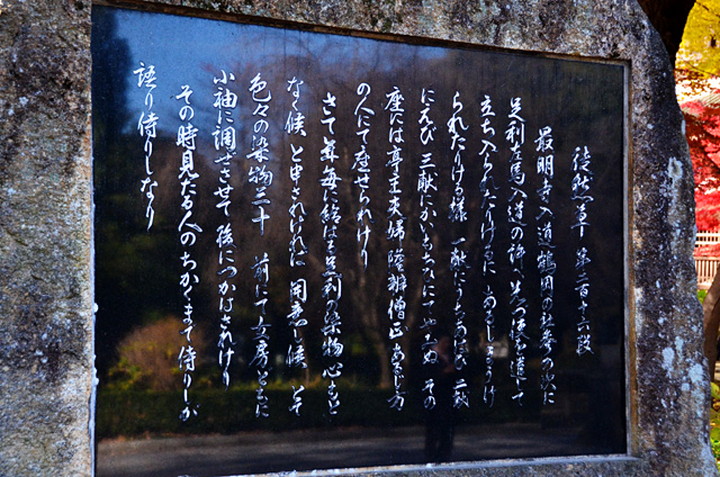 徒然草 第二百十六段
最明寺入道鶴岡の社参の次に
足利左馬入道の許へ先づ使を遣して
立ち入られたりけるに あるじまうけ
られたりける様 一献にうちあはび 二献
にえび 三献にかいもちひにてやみぬ その
座には亭主夫婦 隆辨僧正 あるじ方
の人にて座せられけり
さて年毎に給はる足利の染物 心もと
なく候 と申されければ 用意し候 とて
色々の染物三十 前にて女房どもに
小袖に調ぜさせて 後につかはされけり
その時見たる人のちかくまで侍りしが
語り侍りしなり